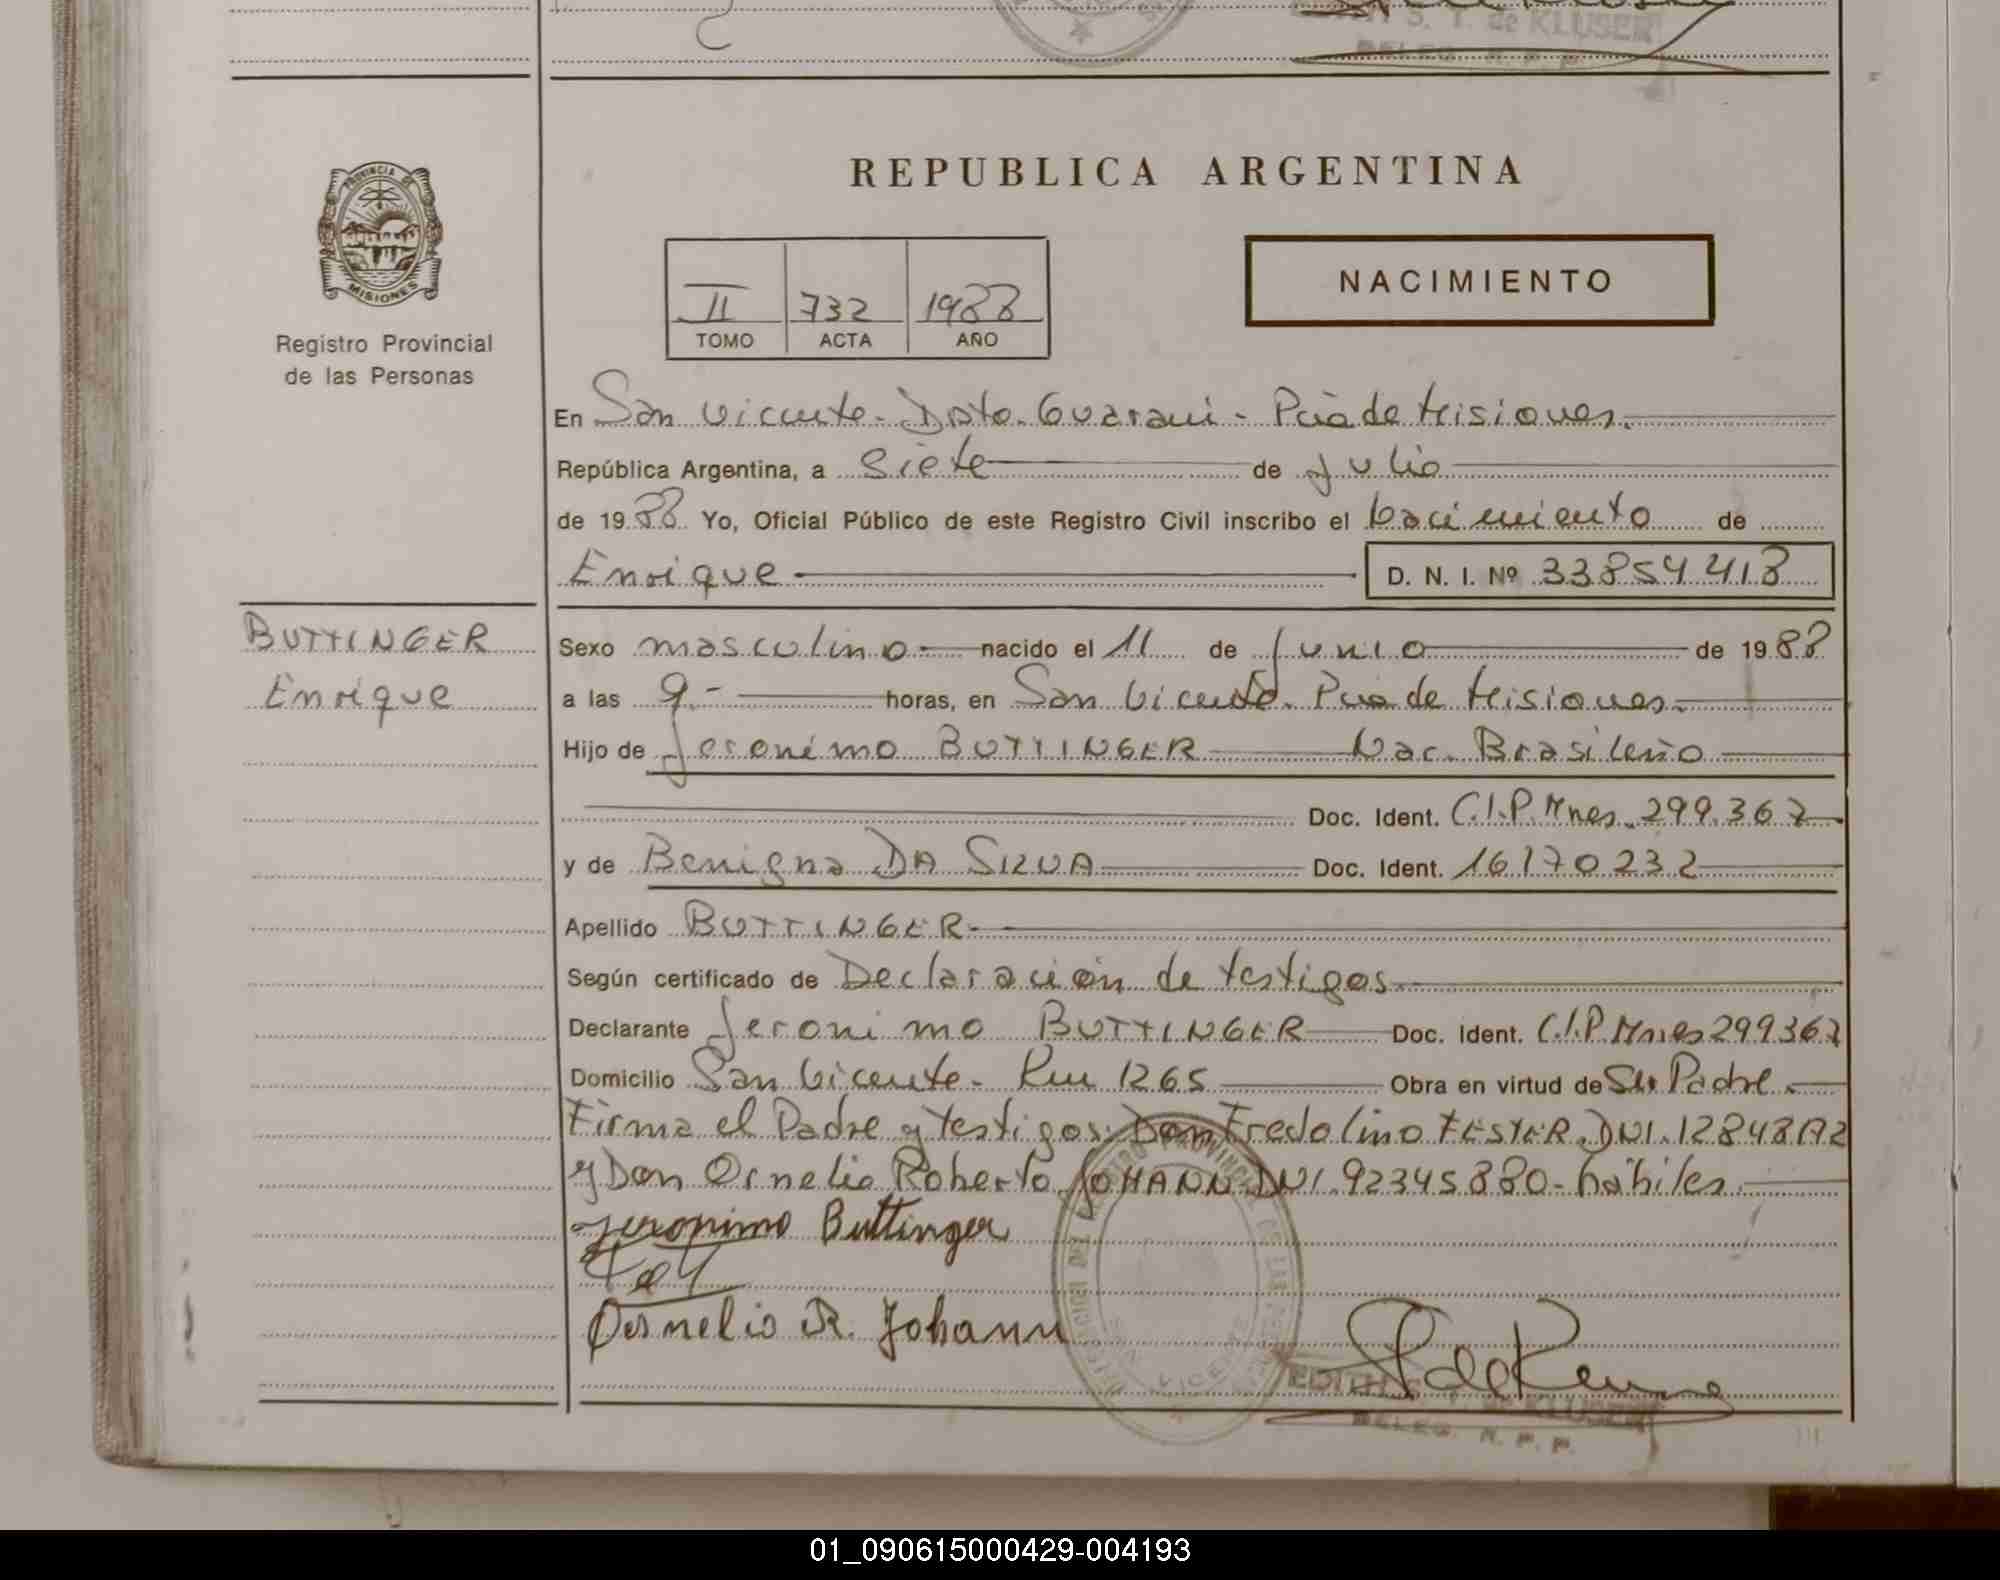 S. T. de KLUSER
DELEG. R. P. P.
REPUBLICA ARGENTINA
PROVINCIA DE
MISIONES
Registro Provincial
de las Personas
II 732 1988
TOMO ACTA AÑO
NACIMIENTO
En San Vicente - Dpto. Guaraní - Pcia de Misiones.
República Argentina, a siete de Julio
de 1988 Yo, Oficial Público de este Registro Civil inscribo el Nacimiento de
Enrique D. N. I. Nº 33854418
BUTTINGER
Enrique
Sexo masculino nacido el 11 de Junio de 1988
a las 9.- horas, en San Vicente. Pcia de Misiones.
Hijo de Jeronimo BUTTINGER Nac. Brasileño
Doc. Ident. C.I.P. Mnes. 299.367
y de Benigna DA SILVA Doc. Ident. 16170232
Apellido BUTTINGER
Según certificado de Declaración de testigos.
Declarante Jeronimo BUTTINGER Doc. Ident. C.I.P. Mnes 299367
Domicilio San Vicente - Km 1265 Obra en virtud de Su Padre.
Firma el Padre y testigos: Don Fredolino FESTER. DNI. 12848172
y Don Ornelio Roberto JOHANN DNI. 92345880 - hábiles.
Jeronimo Buttinger
Ornelio R. Johann
EDITH S. T. de KLUSER
DELEG. R. P. P.
01_090615000429-004193